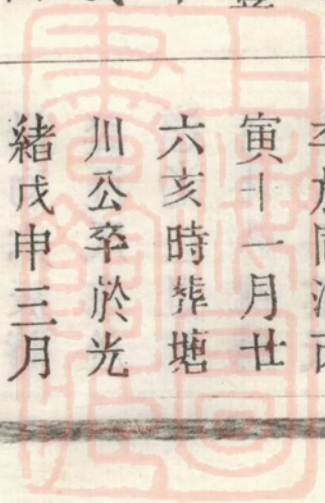 卒於同治丙
寅十一月廿
六亥時葬塘
川公卒於光
緒戊申三月